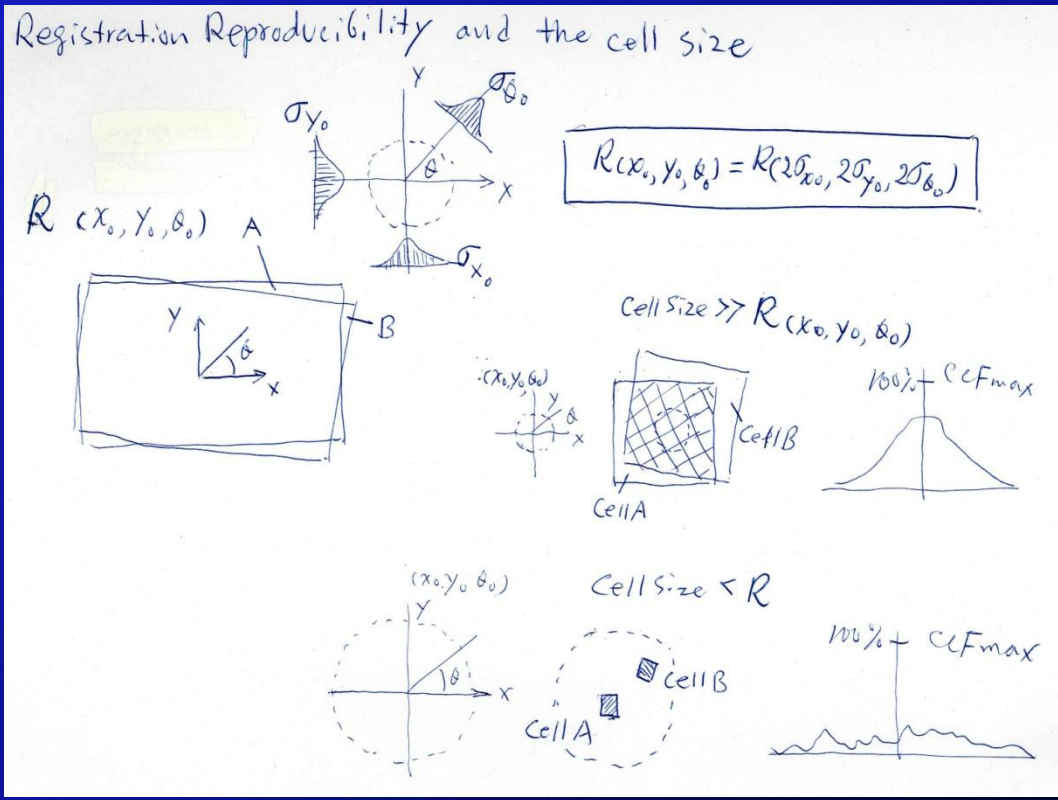 Registration Reproducibility and the cell size
Y
σθ₀
σY₀
θ
X
σX₀
R(x₀, y₀, θ₀) = R(2σx₀, 2σy₀, 2σθ₀)
R (X₀, Y₀, θ₀)
A
B
Y
θ
X
Cell Size >> R(x₀, y₀, θ₀)
(X₀, Y₀, θ₀)
Y
θ
X
Cell B
Cell A
100% CCFmax
(x₀, y₀ θ₀)
Y
θ
X
Cell Size < R
Cell B
Cell A
100% CCFmax